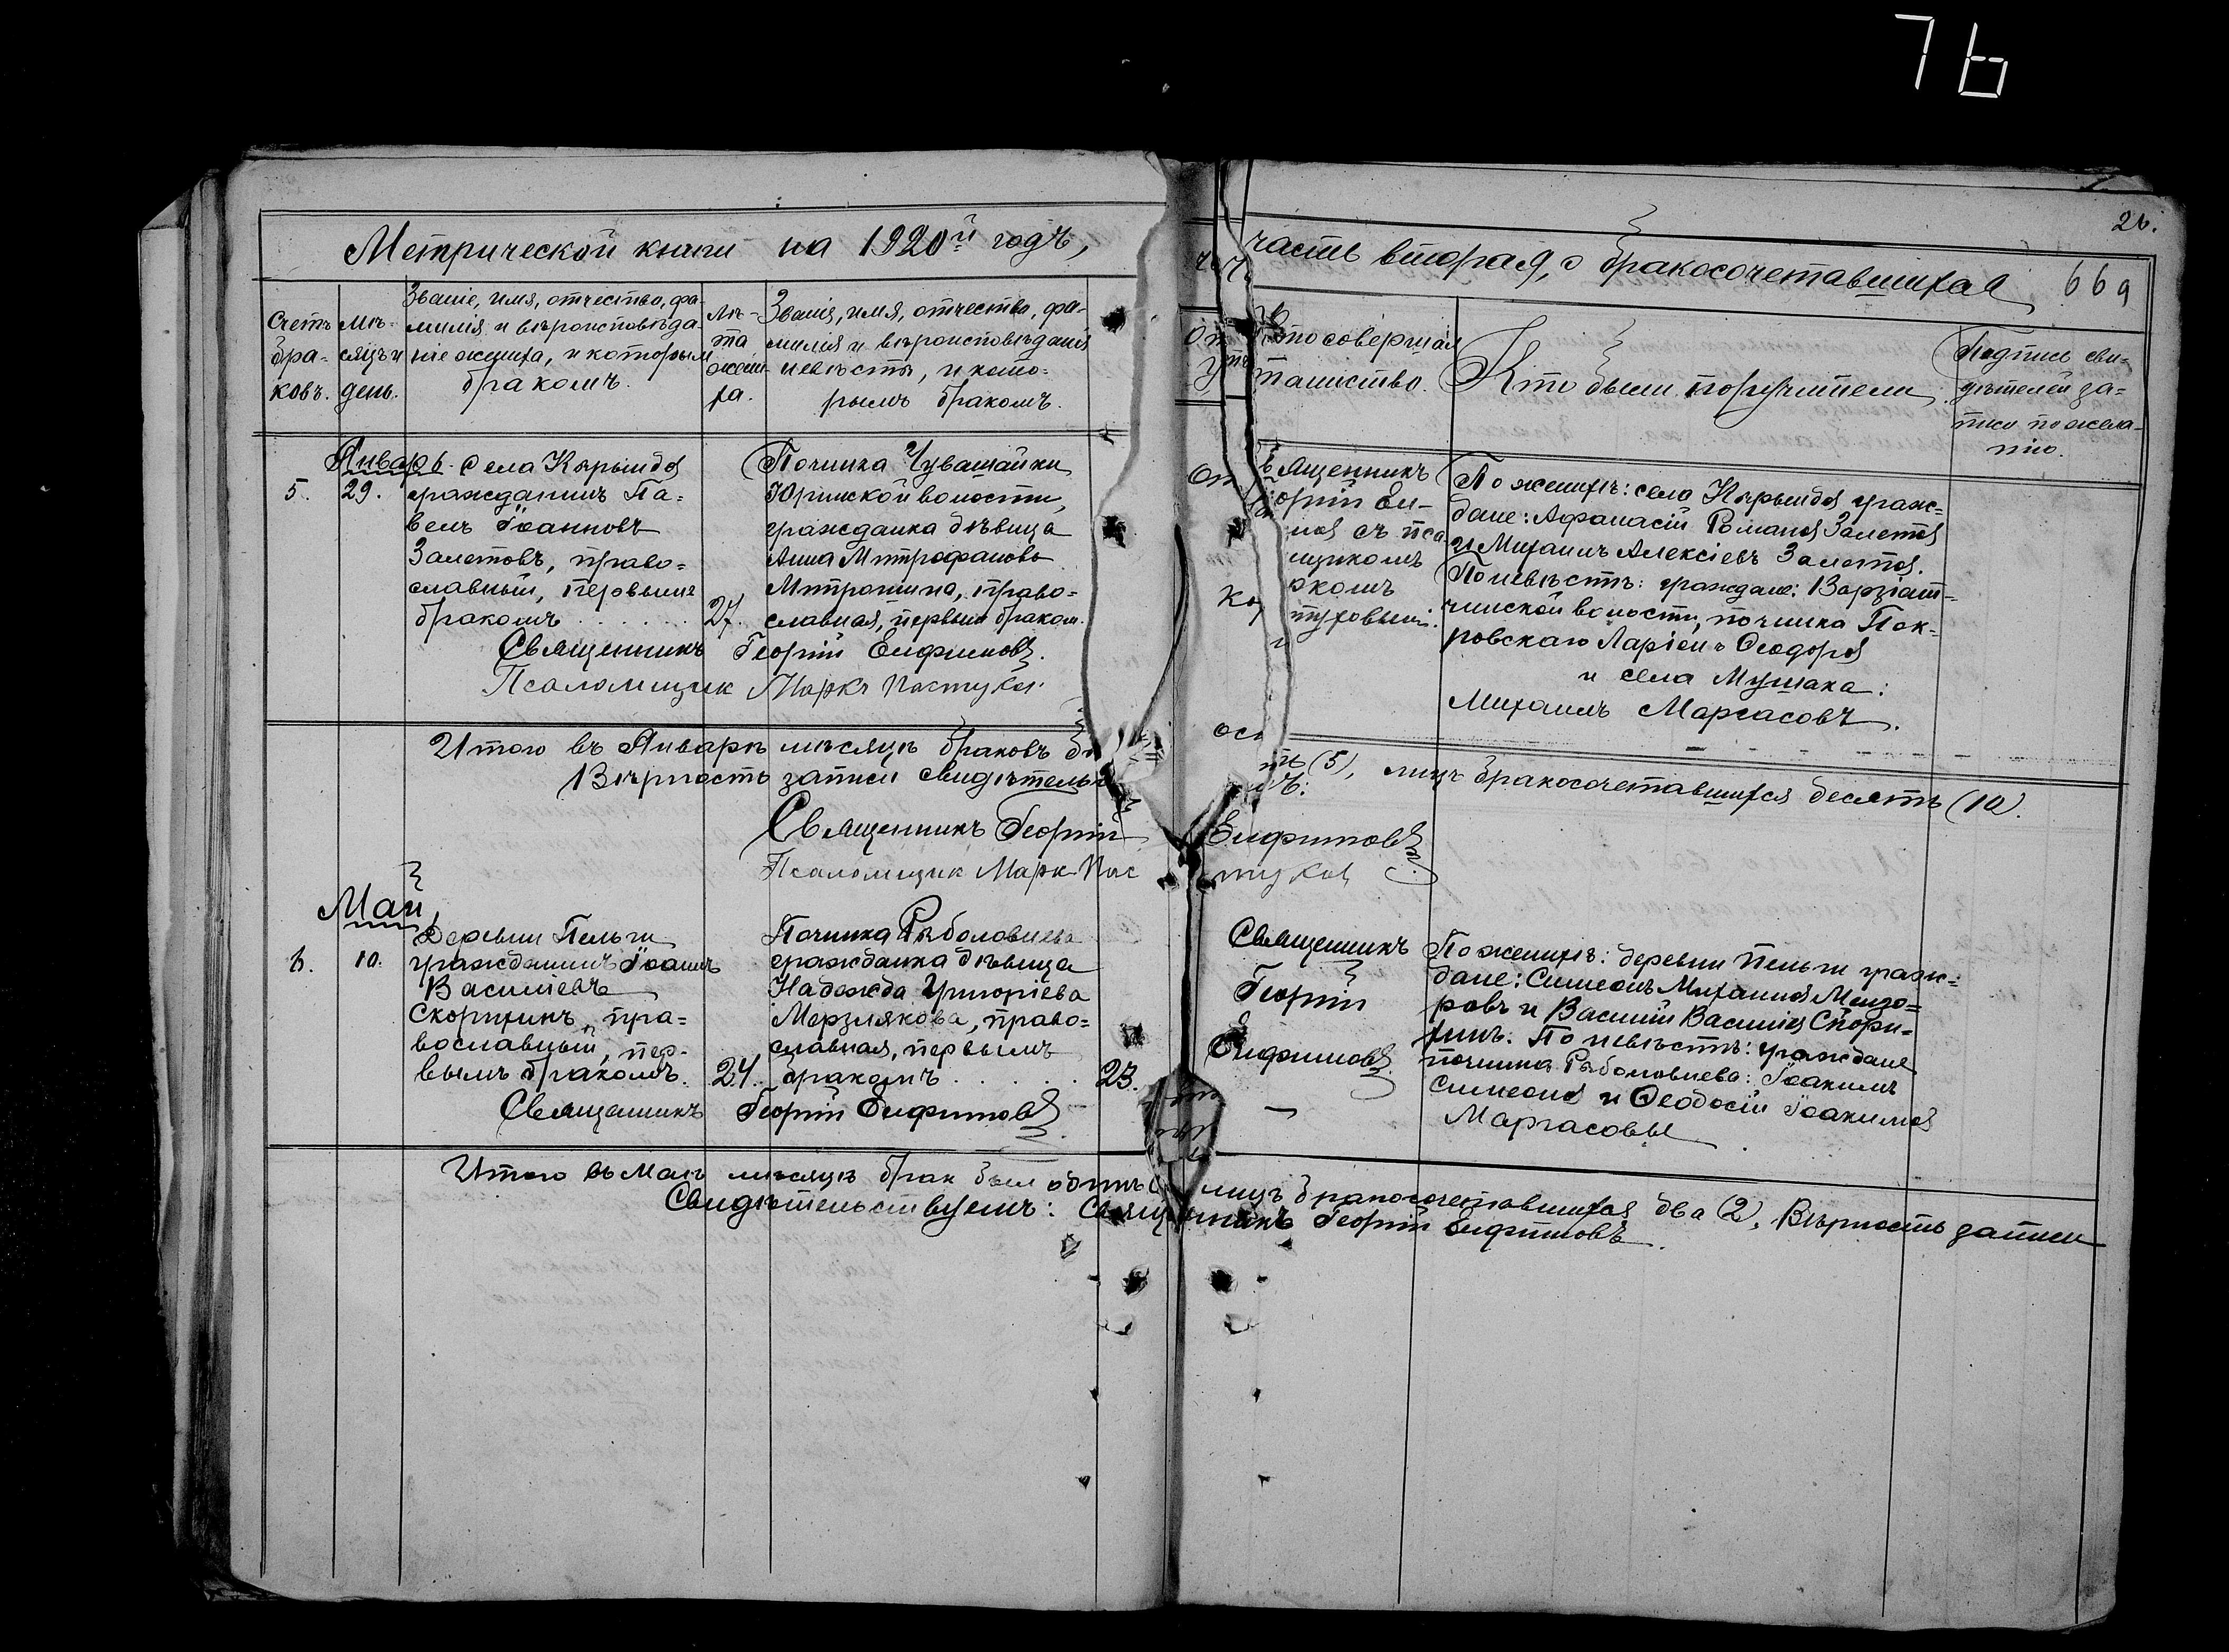 76
26.
Метрической книги на 1920й годъ,
часть вторая, о бракосочетавшихся
669
Счетъ бра-ковъ.
Мѣ-сяцъ и день.
Званіе, имя, отчество, фа-
милія и вѣроисповѣда-
ніе жениха, и которымъ
бракомъ.
Лѣ-
та
жени-
ха.
Званіе, имя, отчество, фа-
милія и вѣроисповѣданія
невѣсты, и кото-
рымъ бракомъ.
Кто совершал
таинство.
Кто были поручители.
Подпись сви-
дѣтелей за-
писи по жела-
нію.
Январь.
5.
29.
Села Кырында
гражданинъ Па-
велъ Іоанновъ
Залетовъ, право-
славный, первымъ
бракомъ
27.
Починка Чувашайки
Юринской волости,
гражданка дѣвица
Анна Митрофанова
Митрошина, право-
славная, первым браком.
Священникъ Георгій Елифимовъ.
Псаломщик Маркъ Пастухов.
ященникъ
оргій Ели-
мов съ пса
щикомъ
ркомъ
туховым.
По женихѣ: села Кырында граж-
дане: Афанасій Романов Залетов
и Михаилъ Алексіевъ Залетов.
По невѣстѣ: граждане: Варзіат-
чинской волости, починка Пок-
ровскаго Ларіон Ѳеодоров
и села Мушака:
Михаилъ Маргасовъ.
Итого въ Январѣ мѣсяцѣ браковъ
ть (5), лицъ бракосочетавшихся десять (10).
Вѣрность записи свидѣтель
мъ:
Священникъ Георгій Елифимовъ
Псаломщик Марк Пастухов
Май
6.
10.
Деревни Пельги
гражданинъ Іоаннъ
Васильевъ
Скорихинъ, пра-
вославный, пер-
вымъ бракомъ.
24.
Починка Рыболовлева
гражданка дѣвица
Надежда Григоріева
Мерзлякова, право-
славная, первымъ
бракомъ
23.
Священникъ Георгій Елифимовъ
Священникъ
Георгій
Елифимовъ
По женихѣ: деревни Пельги граж-
дане: Симеонъ Михаилов
ровъ и Василій Василіев Скори-
хинъ. По невѣстѣ: граждане
починка Рыболовлева: Іоакимъ
Симеонов и Ѳеодосій Іоакимов
Маргасовы
Итого въ Маѣ мѣсяцѣ брак был одинъ лицъ бракосочетавшихся два (2). Вѣрность записи
Свидѣтельствуемъ: Священникъ Георгій Елифимовъ.